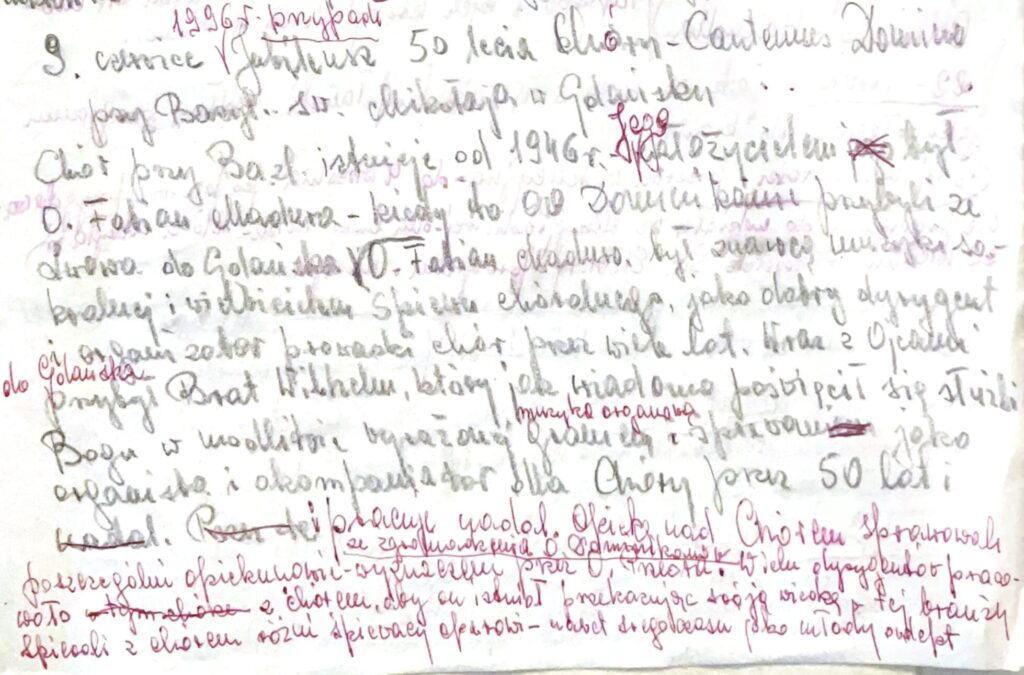 1996 r. przypada
9. czerwiec Jubileusz 50 lecia Chóru - Cantemus Domino
przy Bazyl. św. Mikołaja w Gdańsku
Jego
Chór przy Bazl. istnieje od 1946 r. założycielem był
O. Fabian Madura - kiedy to OO Dominikanie przybyli ze
Lwowa do Gdańska O. Fabian Madura był znawcą muzyki sa-
kralnej i wielbicielem śpiewu chóralnego, jako dobry dyrygent
i organizator prowadził chór przez wiele lat. Wraz z Ojcami
do Gdańska
przybył Brat Wilhelm, który jak wiadomo poświęcił się służbie
muzyką organową
Bogu w modlitwie wyrażonej i śpiewem jako
organista i akompaniator dla Chóru przez 50 lat i
nadal. i pracuje nadal. Opiekę nad Chórem sprawowali
ze zgromadzenia O. Dominikanów
poszczególni opiekunowie wyznaczeni przez O. Przeora. Wielu dyrygentów praco-
wało z chórem, aby on istniał przekazując swoją wiedzę tej branży
Śpiewali z chórem różni śpiewacy operowi - nawet swego czasu jako młody adept